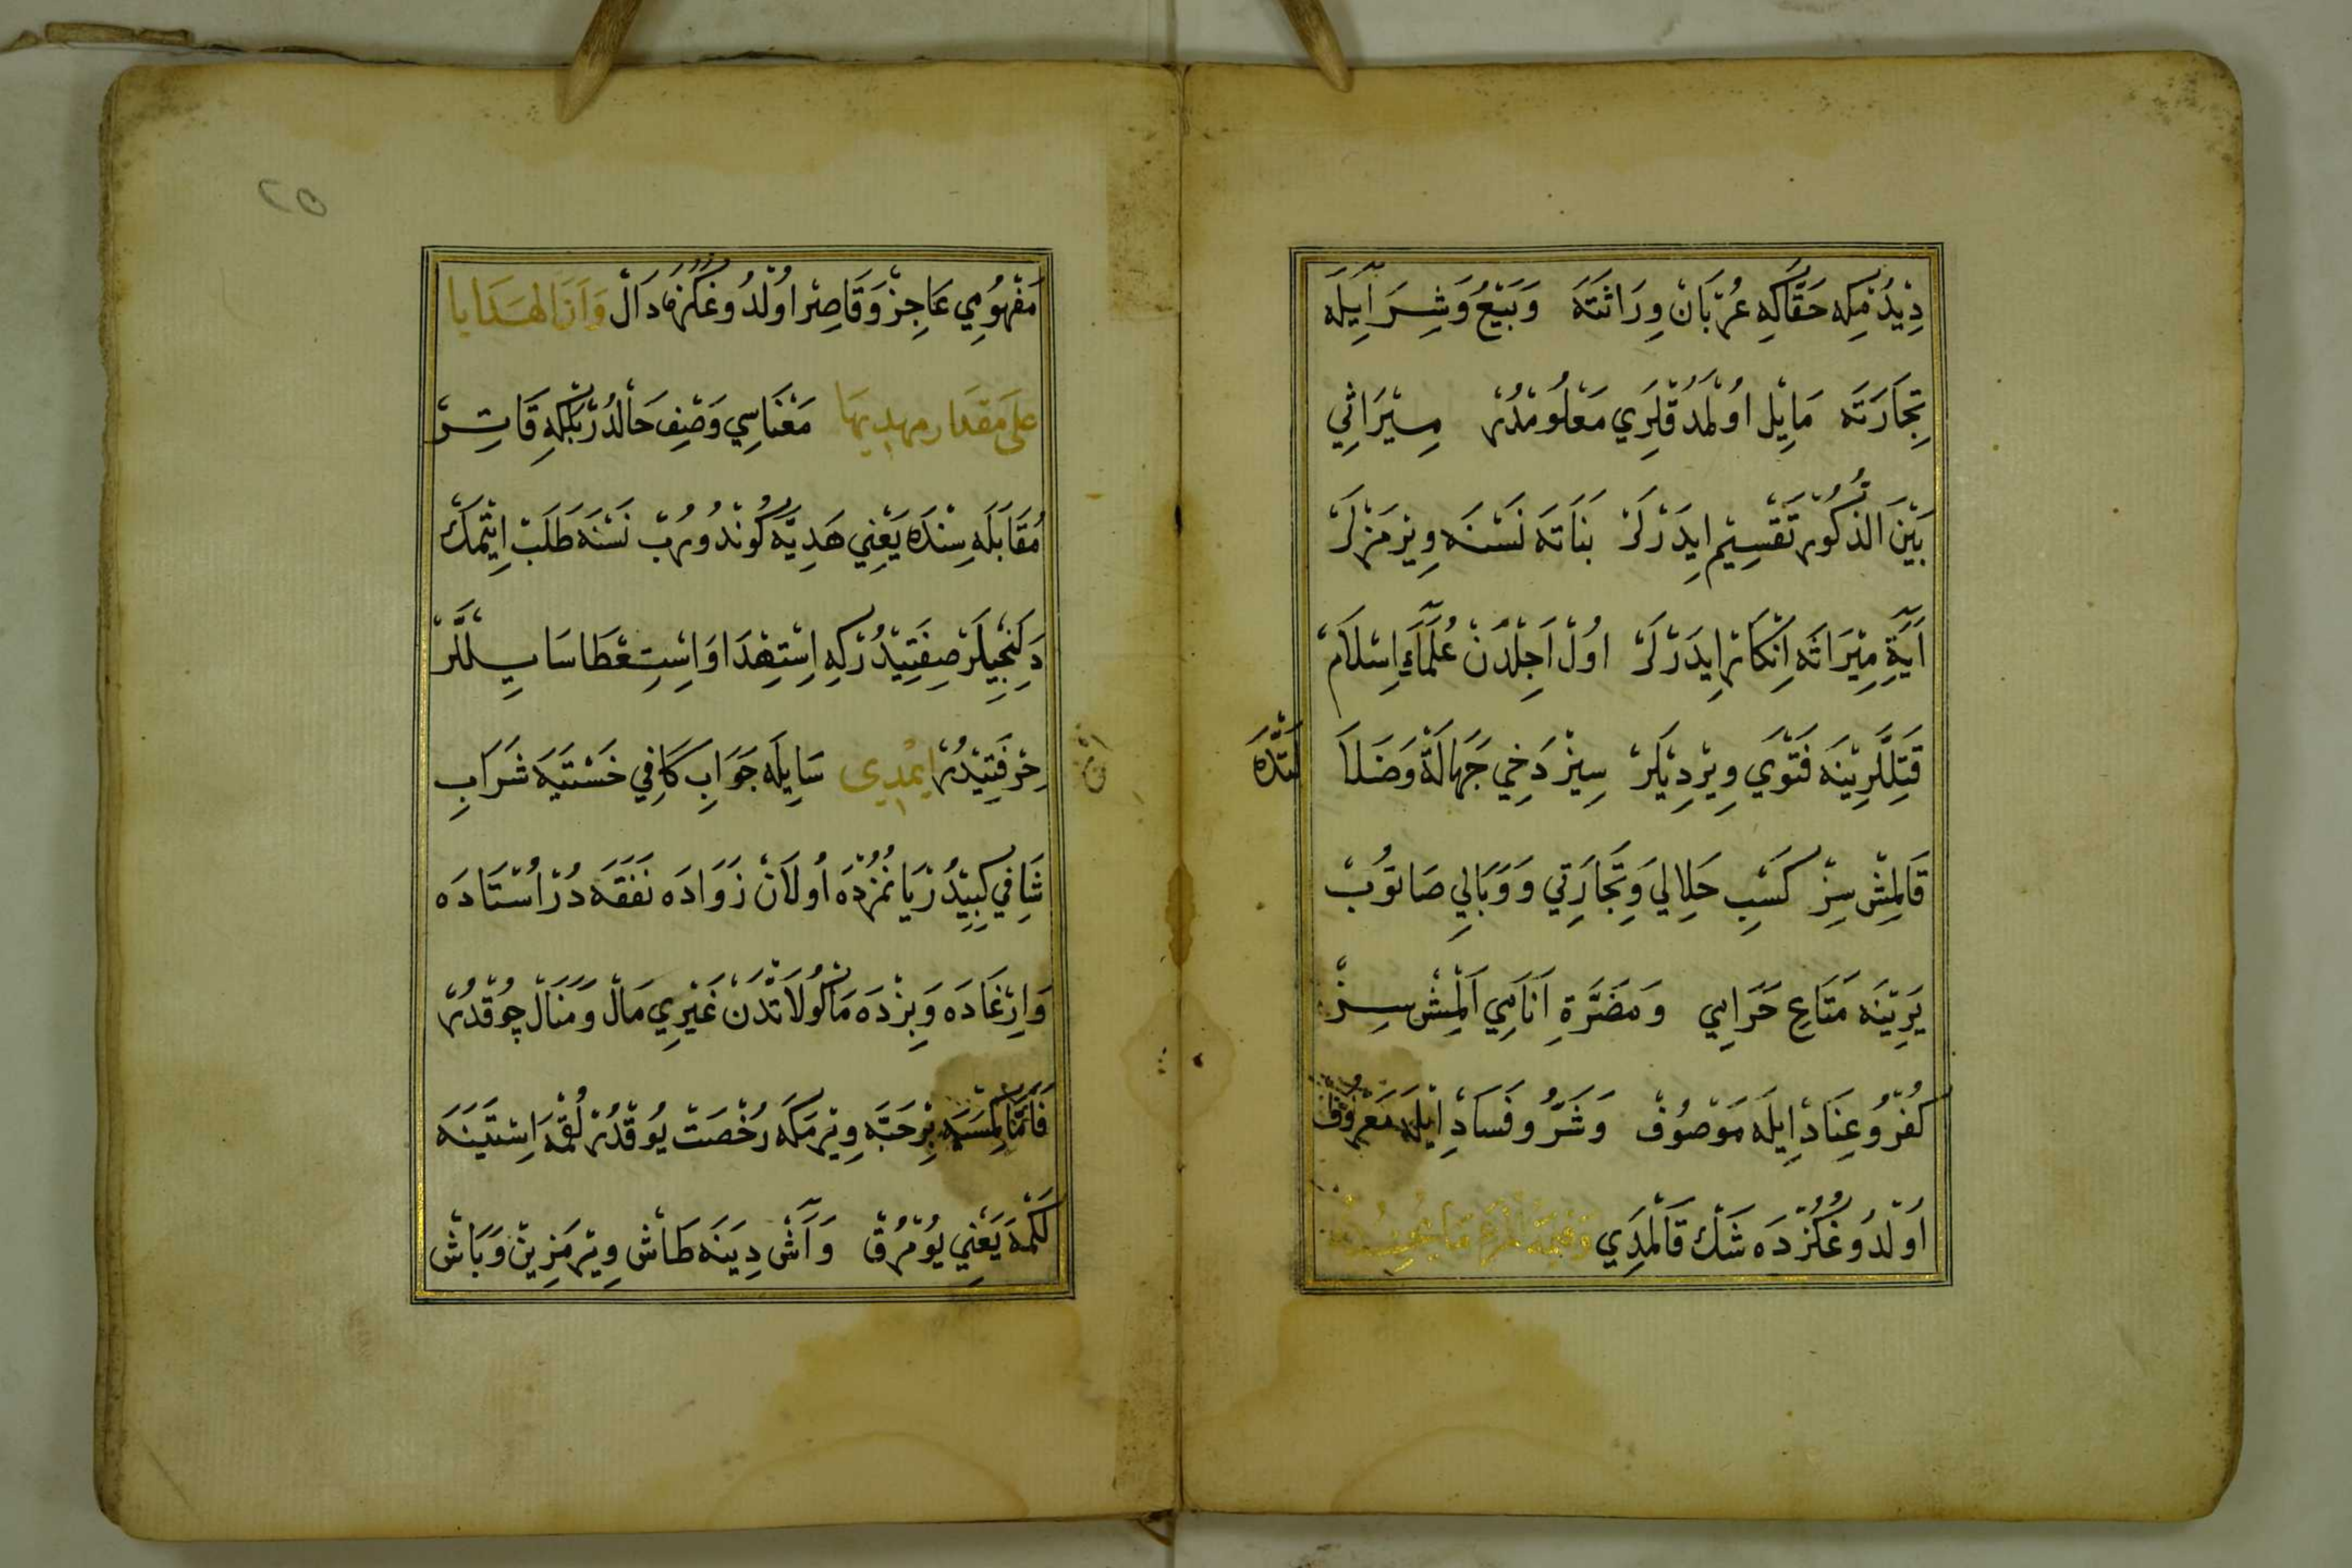 دِيْدُمِكِه حَقَّاكِه عُرْبَانْ وِرَاثَتَه وَبَيْعُ وَشِرَآيِلَه
تِجَارَتَه مَايِلْ اوُلْمَدُقْلَرِي مَعْلُومْدُرْ مِيْرَاثِي
بَيْنَ الذُّكُورْ تَقْسِيْم ايِدَرْلَرْ بَنَاتَه نَسْنَه وِيْرْمَزْلَرْ
آيَةِ مِيْرَاثَه اِنْكَارْ ايِدَرْلَرْ اوُلْ اَجِلْدَنْ عُلَمَآءِ اِسْلَامْ
قَتِلْلَرِيْنَه فَتْوَي وِيْرِدِيْلَرْ سِيْزْ دَخِي جَهَالَةْ وَضَلَا لَتْدَه
قَالْمِشْ سِزْ كَسْبِ حَلَالِي وَتِجَارَتِي وَوَبَالِي صَاتُوبْ
يَرِيْنَه مَتَاعِ حَرَامِي وَمَضَرَّةِ اَنَامِي اَلْمِشْ سِزْ
كُفْرُ وُعِنَادْ اِيلَه مَوْصُوفْ وَشَرُّ وفَسَادْ اِيْلَه مَعْرُوفْ
اوُلْدُوغُكُزْدَه شَكْ قَالْمَدِي
مَفْهُومِي عَاجِزْ وَقَاصِرْ اوُلْدُوغُكُزَه دَالْ وَاَنَّ الهَدَايا
عَلَى مَقدَار مهديهَا مَعْنَاسِي وَصْفِ حَالْدُرْ بَلْكِه قَاتِرْ
مُقَابَلَه سِنْدَه يَعْنِي هَدِيَّه كُونْدُورُبْ نَسْنَه طَلَبْ ايِتْمَكْ
دِلَنْجِيلَرْ صِفَتِيْدُرْكِه اِسْتِهْدَا وَاِسْتِعْطَا سَايِلْلَرْ
حِرْفَتِيْدُرْ ايْمدِي سَايِلَه جَوَابِ كَافِي خَسْتَيَه شَرَابِ
شَافِي كِبِيْدُرْ يَانُمُزْدَه اُولَانْ زَوَادَه نَفَقَه دُرْ اُسْتَادَه
وَايِرْغَادَه وَبِزْدَه مَاكُولَاتْدَنْ غَيْرِي مَالْ وَمَنَالْ چُوقْدُرْ
بِرْحَبَّه وِيْرْمَكَه رُخْصَتْ يُوقْدُرْ لُقْمَه اِسْتَيَنَه
لَكْمَه يَعْنِي يُومْرُقْ وَآشْ دِيَنَه طَاشْ وِيْرْمَزِينْ وَبَاشْ